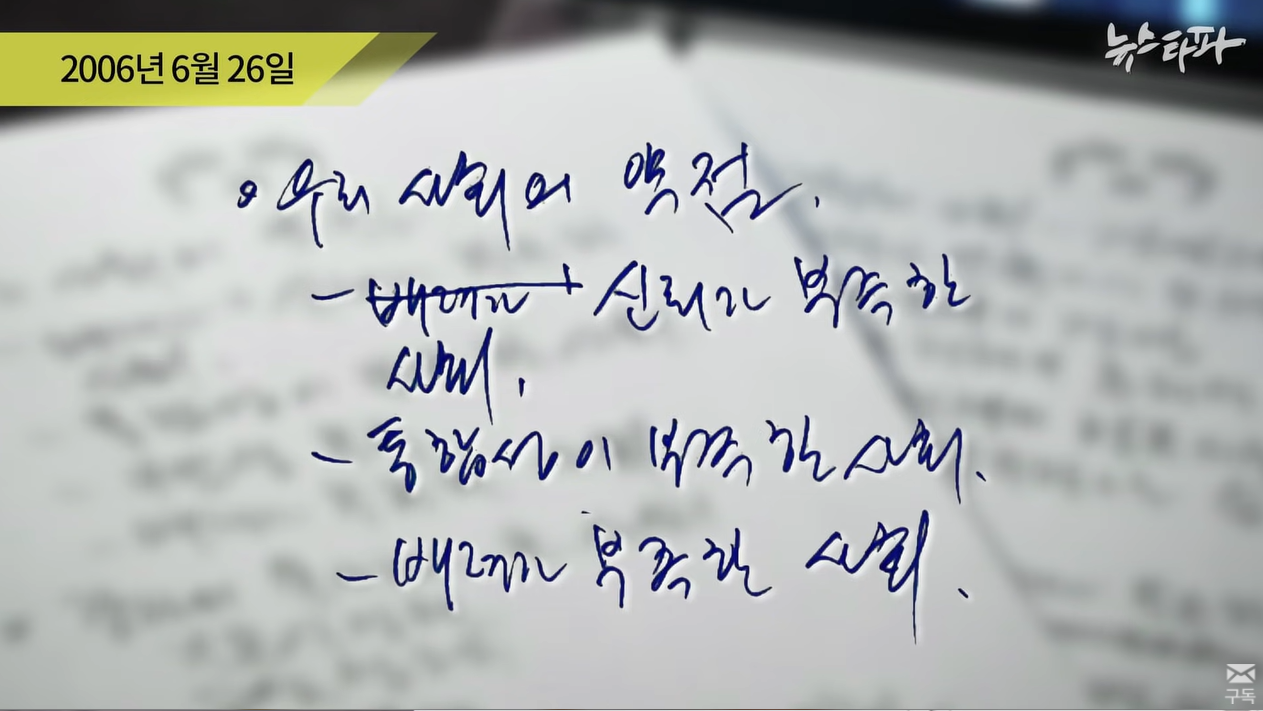 2006년 6월 26일
뉴스타파
우리 사회의 약점.
- 배려가 신뢰가 부족한
사회.
- 통합성이 부족한 사회.
- 배려가 부족한 사회.
구독